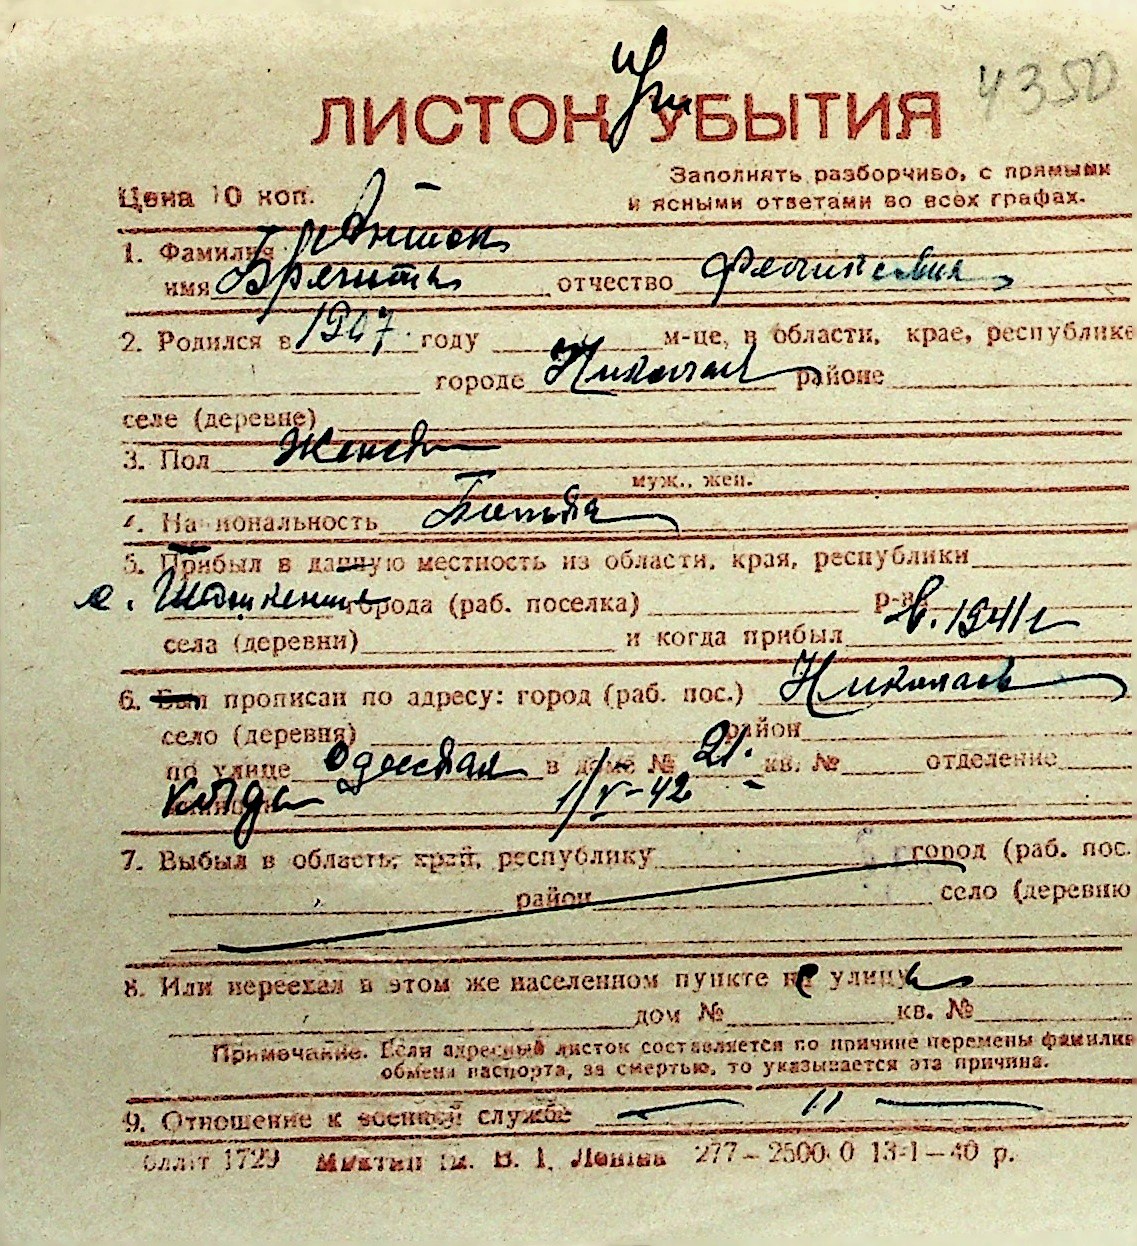 4350
ЛИСТОК УБЫТИЯ
Цена 10 коп.
Заполнять разборчиво, с прямыми
и ясными ответами во всех графах.
1. Фамилия
имя отчество Феликсовна
2. Родился в 1907. году м-це, в области, крае, республике
городе Николаев районе
селе (деревне)
3. Пол Женск
муж., жен.
4. Национальность Полька
5. Прибыл в данную местность из области, края, республики
города (раб. поселка) р-на
села (деревни) и когда прибыл в. 1941 г
6. Был прописан по адресу: город (раб. пос.) Николаев
село (деревня) район
по улице Одесская в доме № 21. кв. № отделение
милиции 1/V-42
7. Выбыл в область, край, республику город (раб. пос.
район село (деревню
8. Или переехал в этом же населенном пункте на улицу
дом № кв. №
Примечание. Если адресный листок составляется по причине перемены фамилии
обмена паспорта, за смертью, то указывается эта причина.
9. Отношение к военной службе — 11 —
1729 В. І. Леніна 277—2500 0 13-1—40 р.